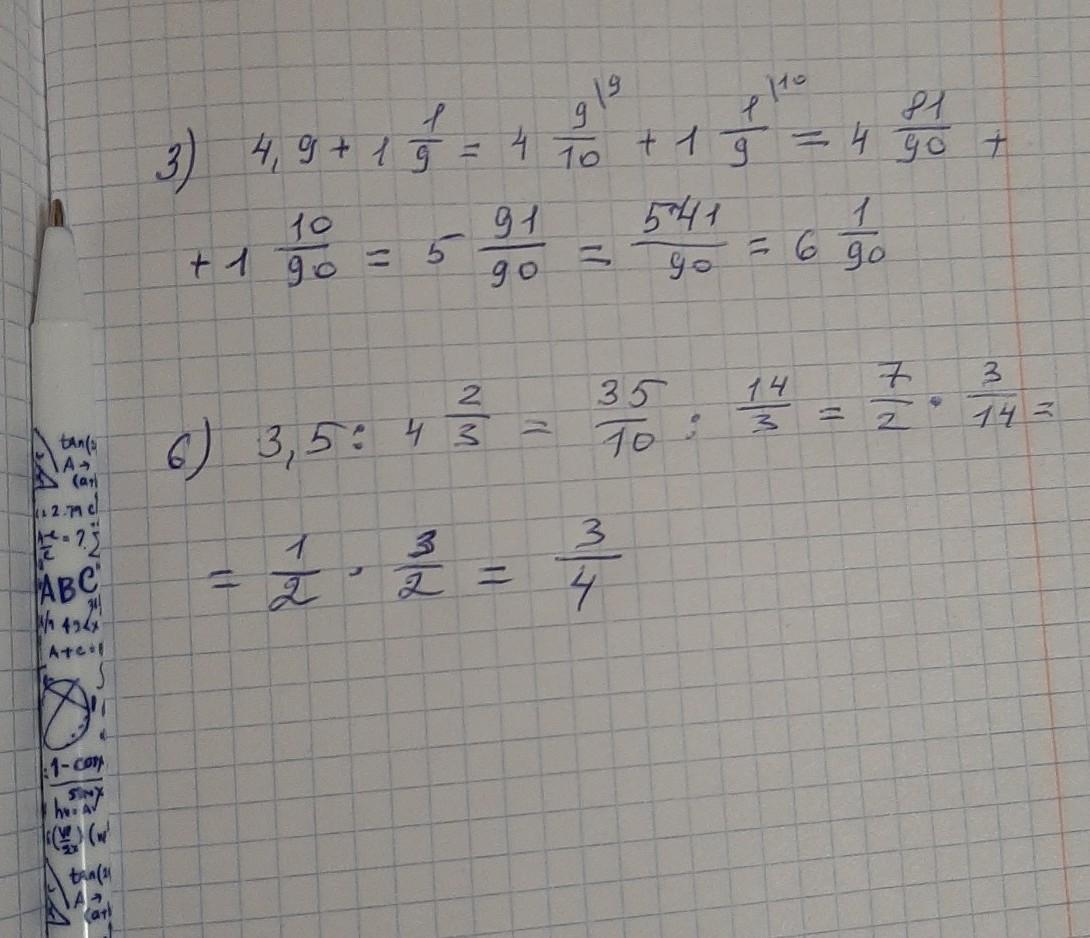 3) 4,9 + 1 1/9 = 4 9/10 \9 + 1 1/9 \10 = 4 81/90 +
+ 1 10/90 = 5 91/90 = 541/90 = 6 1/90
6) 3,5 : 4 2/3 = 35/10 : 14/3 = 7/2 · 3/14 =
= 1/2 · 3/2 = 3/4
tan(
A→
(a+
ABC
A+c=
1-cos
tan(
A→
(a+